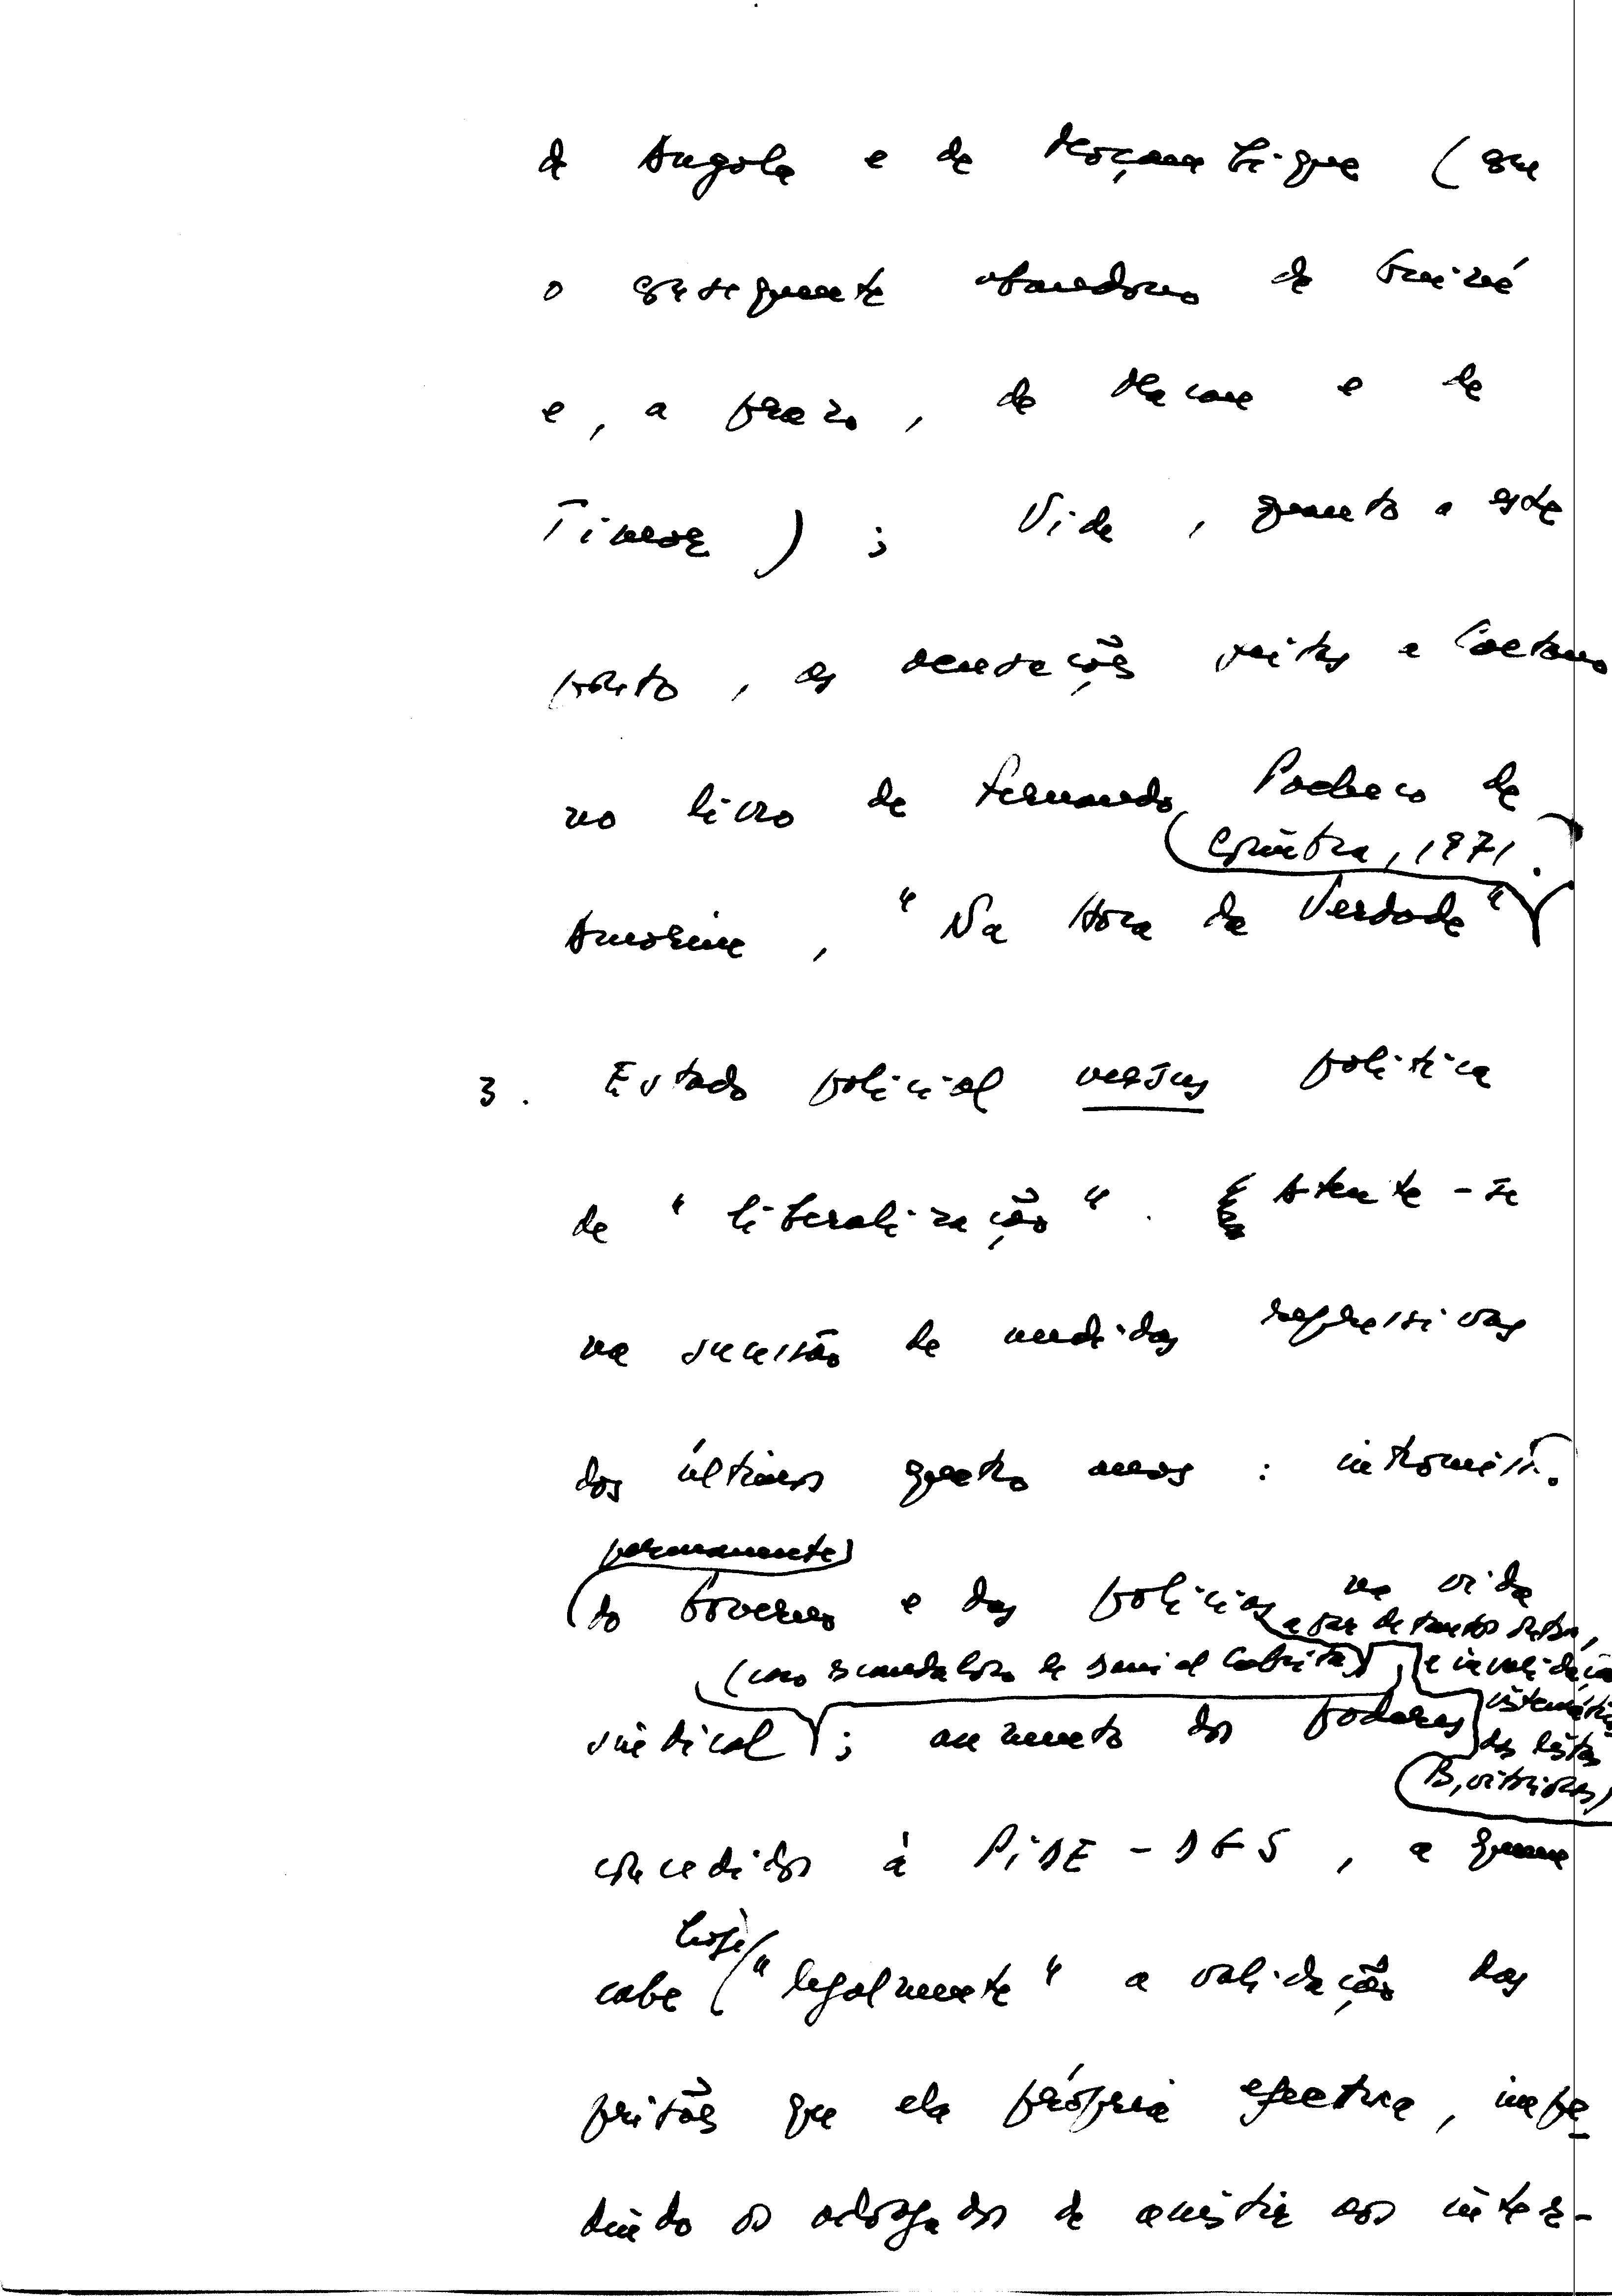 de Angola e de Moçambique (com
o consequente abandono da Guiné
e, a prazo, de Macau e de
Timor); Vide, quanto a este
ponto, as acusações feitas a Caetano
no livro de Fernando Pacheco de
Coimbra, 1971.
Amorim, "Na Hora da Verdade"
3. Estado policial versus política
de "liberalização". Atente-se
na sucessão de medidas repressivas
dos últimos quatro anos: intromissão
permanente
do Governo e das polícias na vida
a par de tantos outros,
(caso escandaloso de Daniel Cabrita) e invalidação
sistemática
sindical; aumento dos poderes
das listas
B, vitoriosas)
concedidos à PIDE-DGS, a quem
hoje
cabe "legalmente" a validação das
prisões que ela própria efectua, impe
dindo os advogados de assistir aos inter-